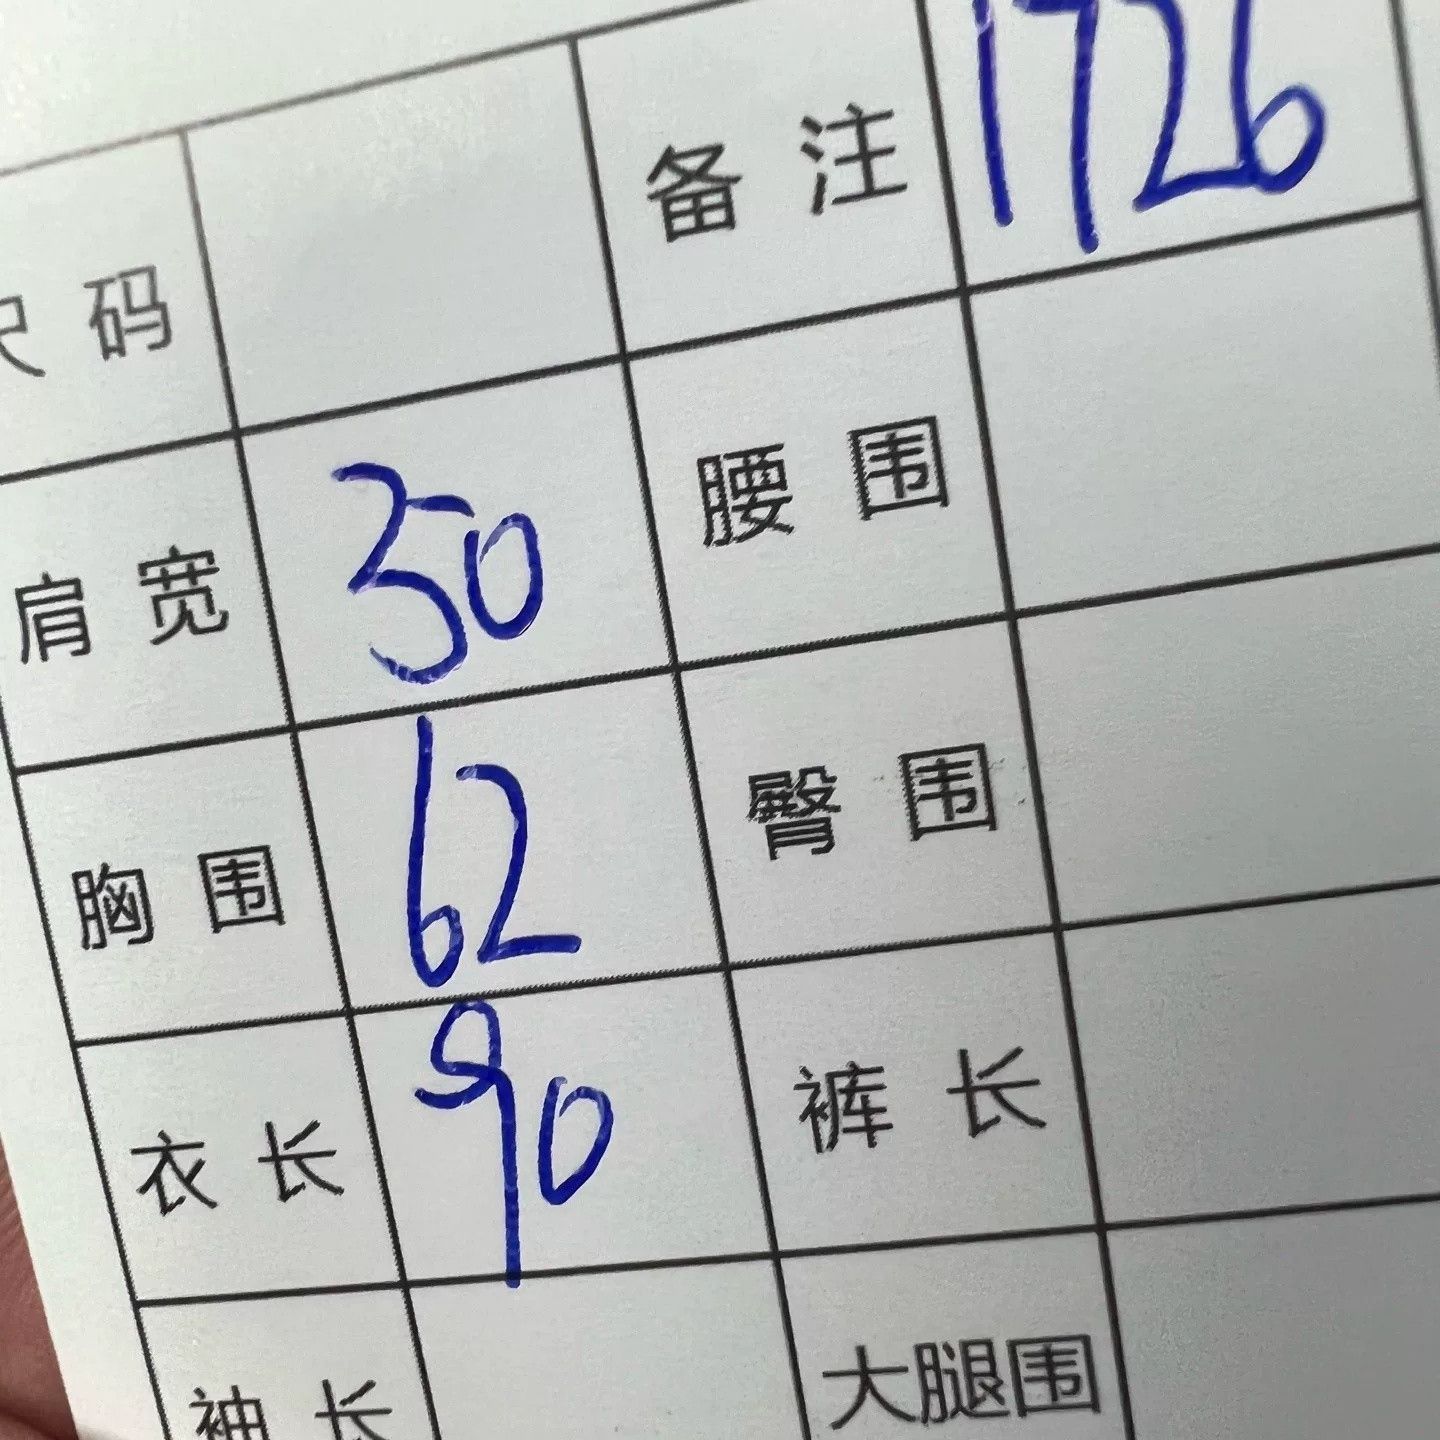 尺码 备注 1726
肩宽 30 腰围
胸围 62 臀围
衣长 90 裤长
袖长 大腿围